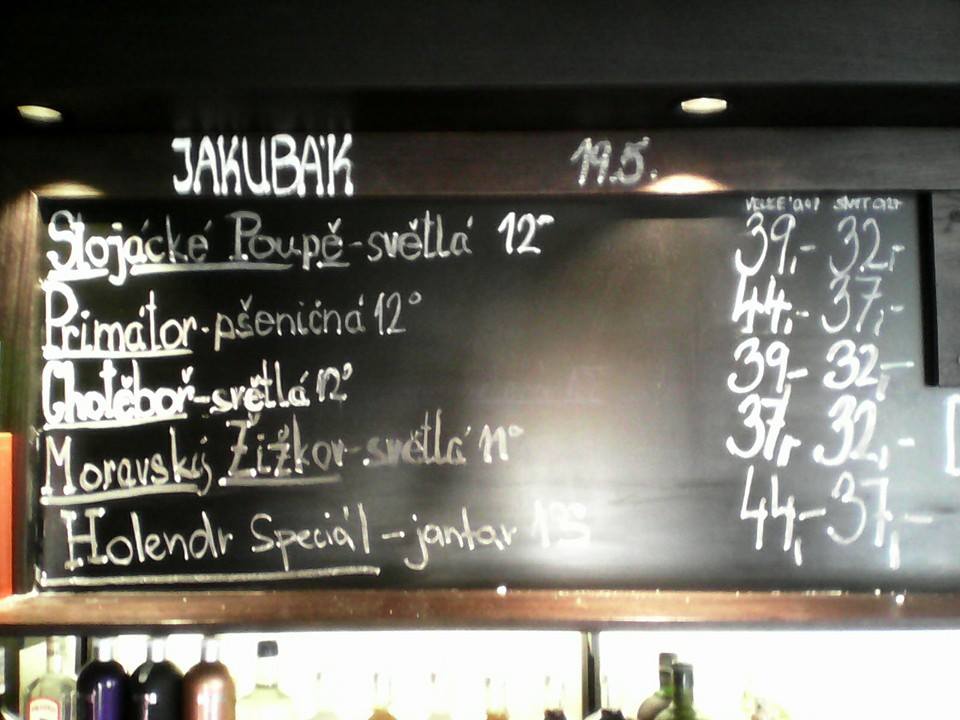 JAKUBÁK 19.5.
Stojácké Poupě-světlá 12° 39,- 32,-
Primátor-pšeničná 12° 44,- 37,-
Chotěboř-světlá 12° 39,- 32,-
Moravský Žižkov-světlá 11° 37,- 32,-
Holendr Speciál-jantar 13° 44,- 37,-